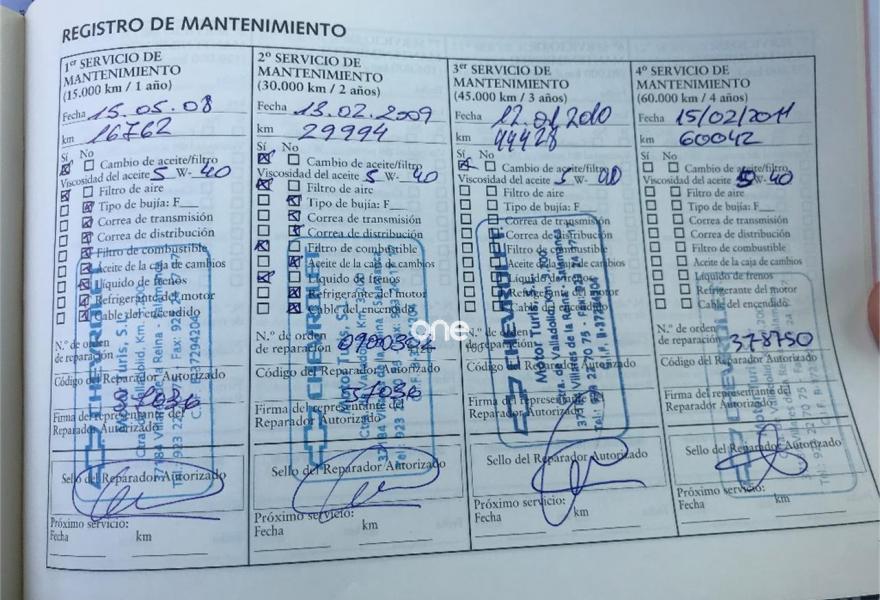 REGISTRO DE MANTENIMIENTO
1er SERVICIO DE
MANTENIMIENTO
(15.000 km / 1 año)
Fecha 15.05.08
km 16762
Sí No
Cambio de aceite/filtro
Viscosidad del aceite 5 W- 40
Filtro de aire
Tipo de bujía: F
Correa de transmisión
Correa de distribución
Filtro de combustible
Aceite de la caja de cambios
Líquido de frenos
Refrigerante del motor
Cable del encendido
N.º de orden
de reparación
Código del Reparador Autorizado
Firma del representante del
Reparador Autorizado
Sello del Reparador Autorizado
Próximo servicio:
Fecha km
2º SERVICIO DE
MANTENIMIENTO
(30.000 km / 2 años)
Fecha 13.02.2009
km 29994
Sí No
Cambio de aceite/filtro
Viscosidad del aceite 5 W- 40
Filtro de aire
Tipo de bujía: F
Correa de transmisión
Correa de distribución
Filtro de combustible
Aceite de la caja de cambios
Líquido de frenos
Refrigerante del motor
Cable del encendido
N.º de orden
de reparación
Código del Reparador Autorizado
37036
Firma del representante del
Reparador Autorizado
Sello del Reparador Autorizado
Próximo servicio:
Fecha km
3er SERVICIO DE
MANTENIMIENTO
(45.000 km / 3 años)
Fecha
km 44428
Sí No
Cambio de aceite/filtro
Viscosidad del aceite 5 W-
Filtro de aire
Tipo de bujía: F
Correa de transmisión
Correa de distribución
Filtro de combustible
Aceite de la caja de cambios
Líquido de frenos
Refrigerante del motor
Cable del encendido
N.º de orden
de reparación
Código del Reparador Autorizado
Firma del representante del
Reparador Autorizado
Sello del Reparador Autorizado
Próximo servicio:
Fecha km
CHEVROLET
Motor Turis, S.A.
4º SERVICIO DE
MANTENIMIENTO
(60.000 km / 4 años)
Fecha 15/02/2011
km 60042
Sí No
Cambio de aceite/filtro
Viscosidad del aceite 5 W- 40
Filtro de aire
Tipo de bujía: F
Correa de transmisión
Correa de distribución
Filtro de combustible
Aceite de la caja de cambios
Líquido de frenos
Refrigerante del motor
Cable del encendido
N.º de orden
de reparación 378750
Código del Reparador Autorizado
Firma del representante del
Reparador Autorizado
Sello del Reparador Autorizado
Próximo servicio:
Fecha km
one